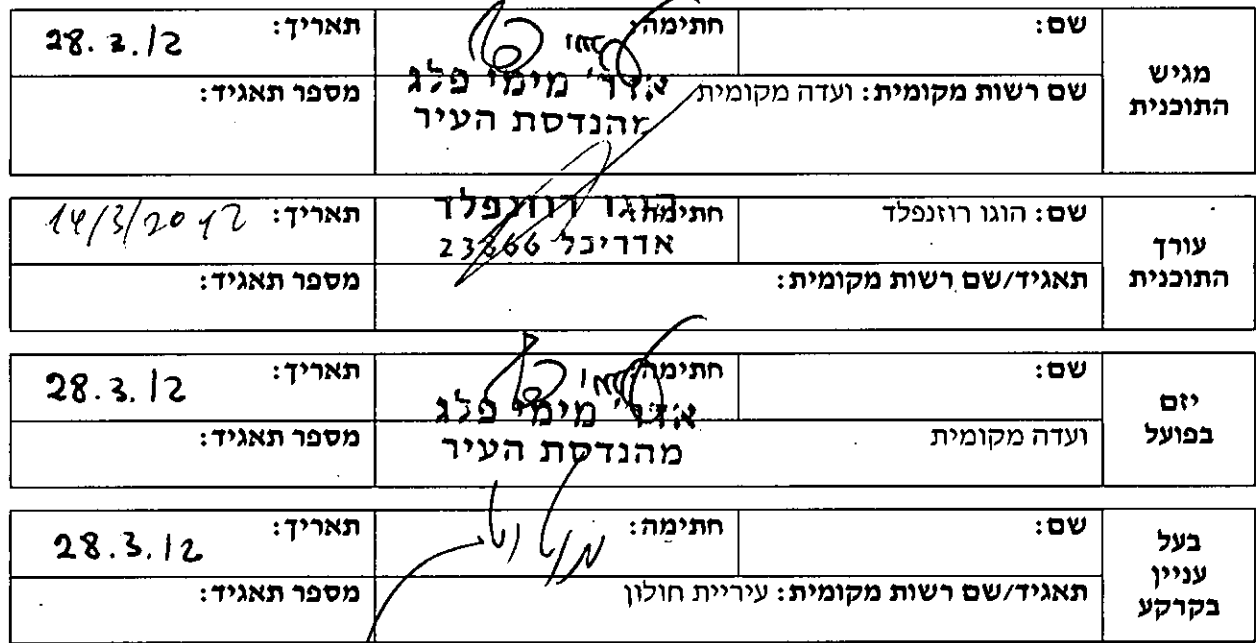 מגיש
התוכנית
שם:
חתימה:
תאריך: 28.3.12
אדר' מימי פלג
מהנדסת העיר
שם רשות מקומית: ועדה מקומית
מספר תאגיד:
עורך
התוכנית
שם: הוגו רוזנפלד
חתימה:
הוגו רוזנפלד
אדריכל 23866
תאריך: 14/3/2012
תאגיד/שם רשות מקומית:
מספר תאגיד:
יזם
בפועל
שם:
חתימה:
תאריך: 28.3.12
אדר' מימי פלג
מהנדסת העיר
ועדה מקומית
מספר תאגיד:
בעל
עניין
בקרקע
שם:
חתימה:
תאריך: 28.3.12
תאגיד/שם רשות מקומית: עיריית חולון
מספר תאגיד: